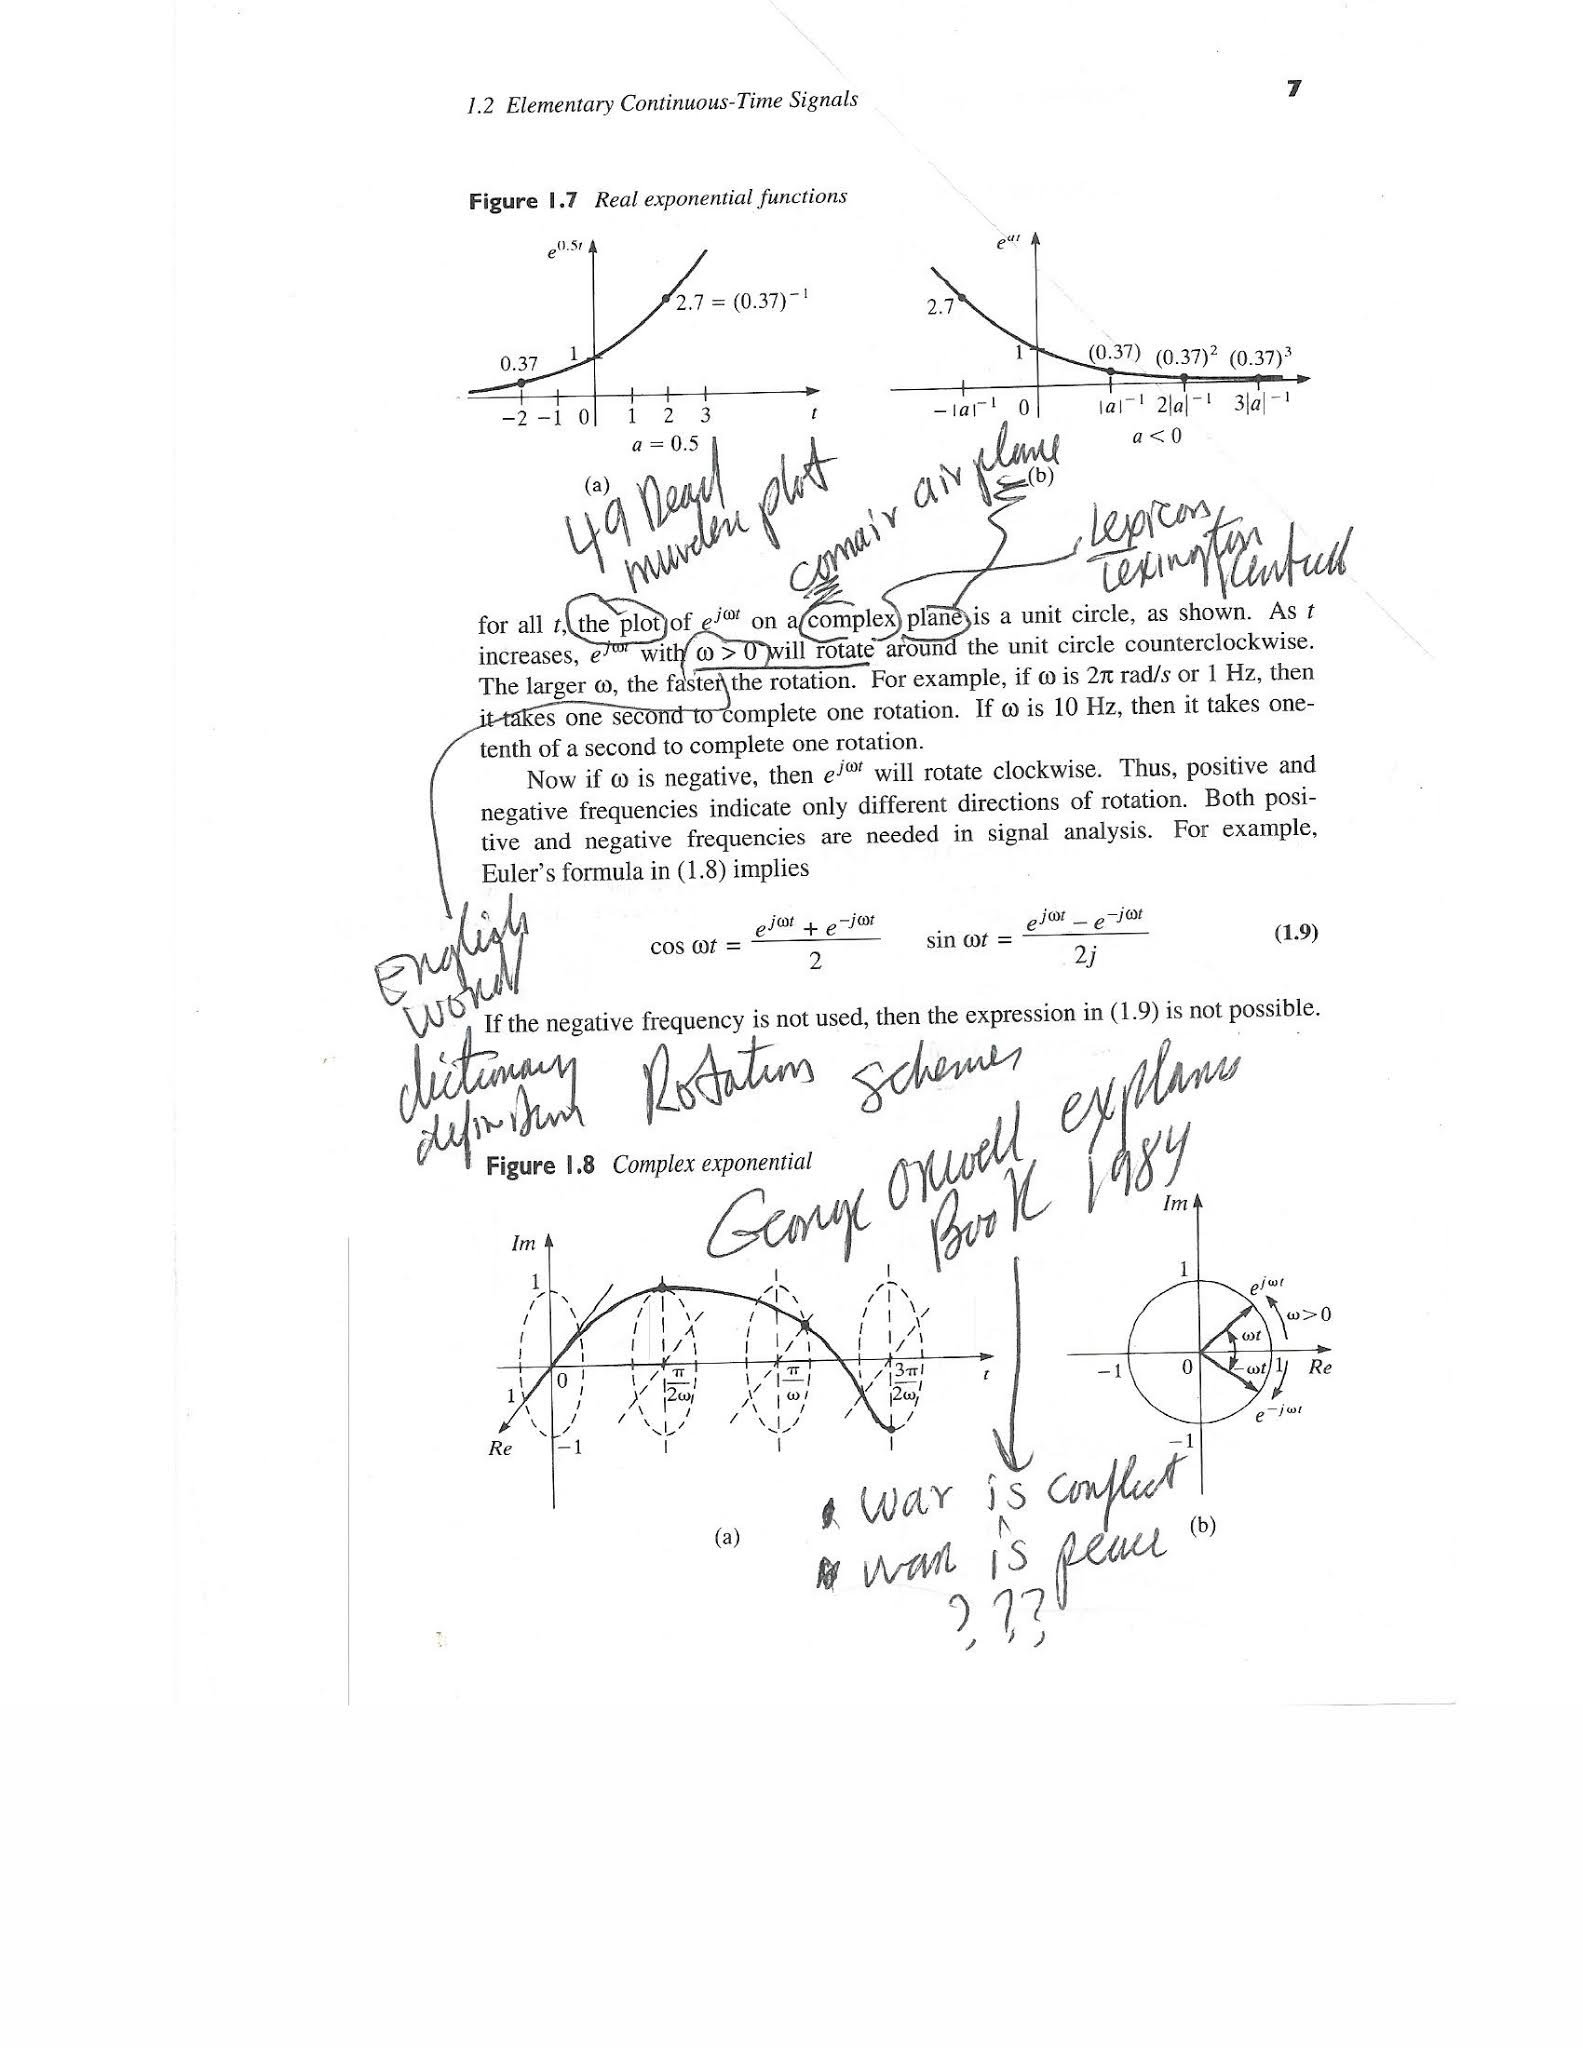 1.2 Elementary Continuous-Time Signals 7
Figure 1.7 Real exponential functions
e^0.5t
2.7 = (0.37)^−1
0.37
1
−2 −1 0 1 2 3 t
a = 0.5
(a)
e^at
2.7
1
(0.37) (0.37)² (0.37)³
−|a|^−1 0 |a|^−1 2|a|^−1 3|a|^−1
a < 0
(b)
49 Dead
murder plot
comair airplane
Lexicon
Lexington
for all t, the plot of e^jωt on a complex plane is a unit circle, as shown. As t
increases, e^jωt with ω > 0 will rotate around the unit circle counterclockwise.
The larger ω, the faster the rotation. For example, if ω is 2π rad/s or 1 Hz, then
it takes one second to complete one rotation. If ω is 10 Hz, then it takes one-
tenth of a second to complete one rotation.
Now if ω is negative, then e^jωt will rotate clockwise. Thus, positive and
negative frequencies indicate only different directions of rotation. Both posi-
tive and negative frequencies are needed in signal analysis. For example,
Euler's formula in (1.8) implies
cos ωt = (e^jωt + e^−jωt)/2 sin ωt = (e^jωt − e^−jωt)/2j (1.9)
English
word
dictionary
definition
If the negative frequency is not used, then the expression in (1.9) is not possible.
Rotation schemes
George Orwell explains
Book 1984
Figure 1.8 Complex exponential
Im
1
0
1
Re
−1
π/2ω
π/ω
3π/2ω
t
(a)
Im
1
e^jωt
ω>0
ωt
−1 0 −ωt 1 Re
e^−jωt
−1
(b)
war is conflict
war is peace
???